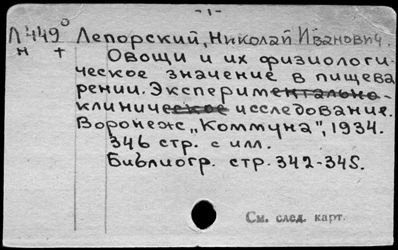 - 1 -
Л449⁰ Лепорский, Николай Иванович.
н т Овощи и их физиологи-
ческое значение в пищева
рении. Экспериментально-
клиническое исследование.
Воронеж, „Коммуна", 1934.
346 стр. с илл.
Библиогр. стр. 342-345.
См. след. карт.